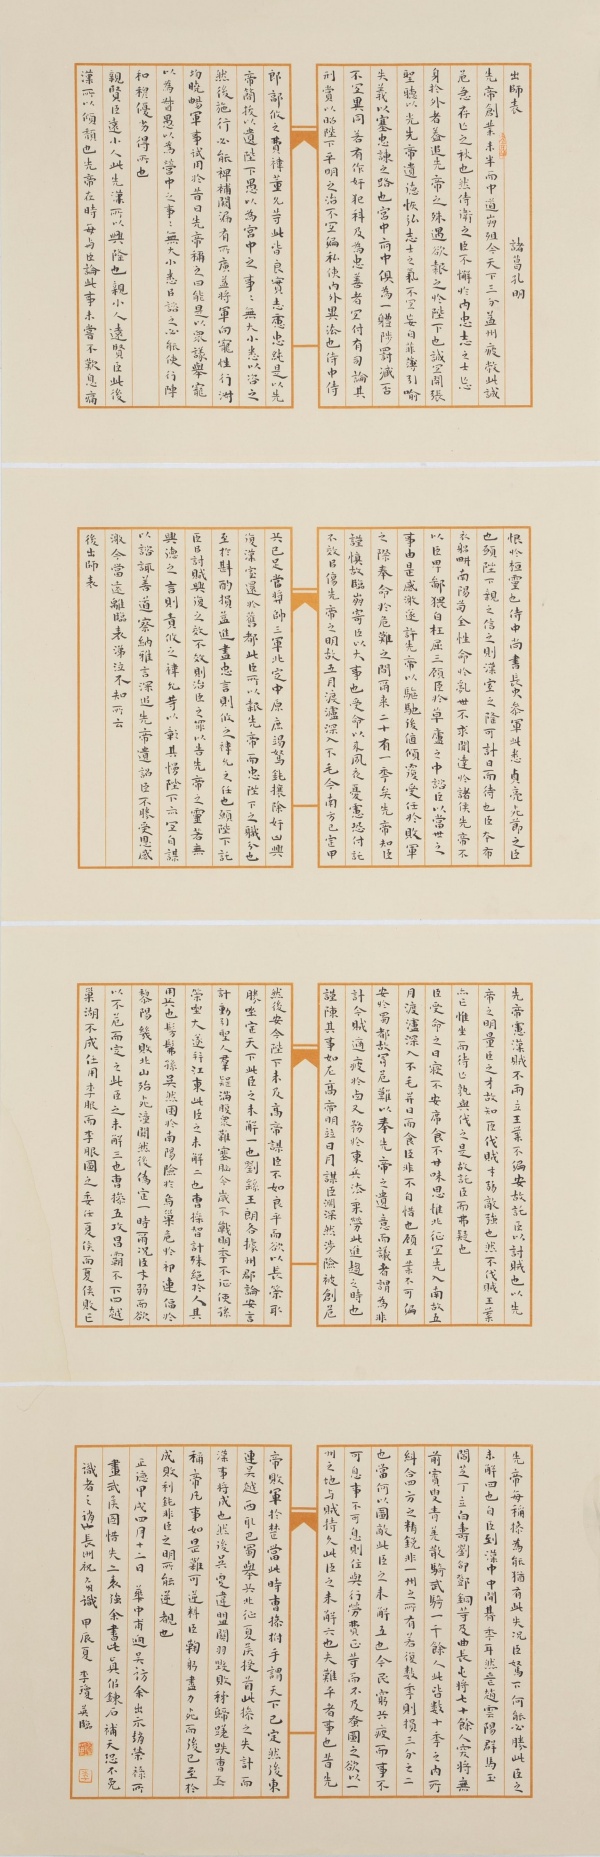 出師表 諸葛孔明
先帝創業未半而中道崩殂今天下三分益州疲敝此誠
危急存亡之秋也然侍衛之臣不懈於內忠志之士忘
身於外者蓋追先帝之殊遇欲報之於陛下也誠宜開張
聖聽以光先帝遺德恢弘志士之氣不宜妄自菲薄引喻
失義以塞忠諫之路也宮中府中俱為一體陟罰臧否
不宜異同若有作奸犯科及為忠善者宜付有司論其
刑賞以昭陛下平明之治不宜偏私使內外異法也侍中侍
郎郭攸之費禕董允等此皆良實志慮忠純是以先
帝簡拔以遺陛下愚以為宮中之事:無大小悉以咨之
然後施行必能裨補闕漏有所廣益將軍向寵性行淑
均曉暢軍事試用於昔日先帝稱之曰能是以眾議舉寵
以為督愚以為營中之事:無大小悉以諮之必能使行陣
和穆優劣得所也
親賢臣遠小人此先漢所以興隆也親小人遠賢臣此後
漢所以傾頹也先帝在時每与臣論此事未嘗不歎息痛
恨於桓靈也侍中尚書長史參軍此悉貞亮死節之臣
也願陛下親之信之則漢室之隆可計日而待也臣本布
衣躬耕南陽苟全性命於亂世不求聞達於諸侯先帝不
以臣卑鄙猥自枉屈三顧臣於草廬之中諮臣以當世之
事由是感激遂許先帝以驅馳後值傾覆受任於敗軍
之際奉命於危難之間爾來二十有一年矣先帝知臣
謹慎故臨崩寄臣以大事也受命以來夙夜憂慮恐付託
不效以傷先帝之明故五月渡瀘深入不毛今南方已定甲
兵已足當獎帥三軍北定中原庶竭駑鈍攘除奸凶興
復漢室還於舊都此臣所以報先帝而忠陛下之職分也
至於斟酌損益進盡忠言則攸之禕允之任也願陛下託
臣以討賊興復之效不效則治臣之罪以告先帝之靈若無
興德之言則責攸之禕允等以彰其慢陛下亦宜自謀
以諮諏善道察納雅言深追先帝遺詔臣不勝受恩感
激今當遠離臨表涕泣不知所云
後出師表
先帝慮漢賊不兩立王業不偏安故託臣以討賊也以先
帝之明量臣之才故知臣伐賊才弱敵強也然不伐賊王業
亦亡惟坐而待亡孰與伐之是故託臣而弗疑也
臣受命之日寢不安席食不甘味思惟北征宜先入南故五
月渡瀘深入不毛并日而食臣非不自惜也顧王業不可偏
安於蜀都故冒危難以奉先帝之遺意而議者謂為非
計今賊適疲於西又務於東兵法乘勞此進趨之時也
謹陳其事如左高帝明並日月謀臣淵深然涉險被創危
然後安今陛下未及高帝謀臣不如良平而欲以長策取
勝坐定天下此臣之未解一也劉繇王朗各據州郡論安言
計動引聖人羣疑滿腹眾難塞胸今歲不戰明年不征使孫
策坐大遂并江東此臣之未解二也曹操智計殊絕於人其
用兵也髣髴孫吳然困於南陽險於烏巢危於祁連偪於
黎陽幾敗北山殆死潼關然後偽定一時爾況臣才弱而欲
以不危而定之此臣之未解三也曹操五攻昌霸不下四越
巢湖不成任用李服而李服圖之委任夏侯而夏侯敗亡
先帝每稱操為能猶有此失況臣駑下何能必勝此臣之
未解四也自臣到漢中中間朞年耳然喪趙雲陽群馬玉
閻芝丁立白壽劉郃鄧銅等及曲長屯將七十餘人突將無
前賨叟青羌散騎武騎一千餘人此皆數十年之內所
糾合四方之精銳非一州之所有若復數年則損三分之二
也當何以圖敵此臣之未解五也今民窮兵疲而事不
可息事不可息則住與行勞費正等而不及蚤圖之欲以一
州之地与賊持久此臣之未解六也夫難平者事也昔先
帝敗軍於楚當此時曹操拊手謂天下已定然後東
連吳越西取巴蜀舉兵北征夏侯授首此操之失計而
漢事將成也然後吳更違盟關羽毀敗秭歸蹉跌曹丕
稱帝凡事如是難可逆料臣鞠躬盡力死而後已至於
成敗利鈍非臣之明所能逆覩也
正德甲戌四月十二日 華中甫過吳訪余出示趙榮祿所
畫武侯圖惜失二表強余書此真佀鍊石補天恐不免
識者之誚也長洲祝允明識 甲辰夏 李瓊英臨